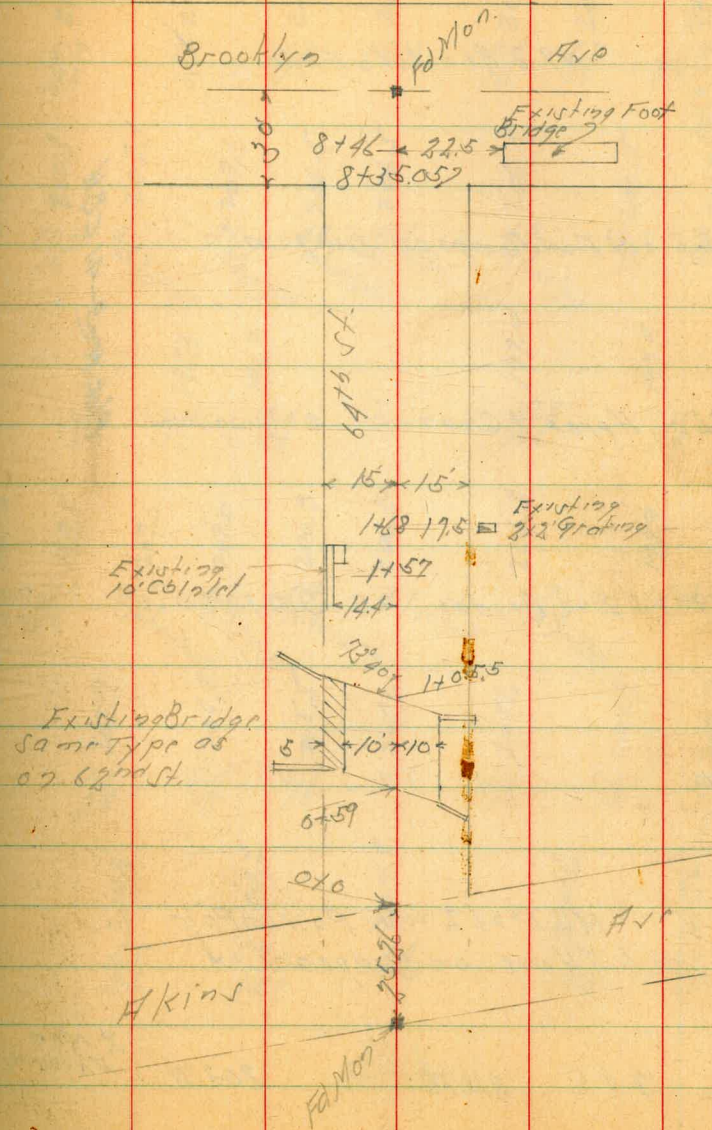 Brooklyn Fd Mon. Ave
30'
Existing Foot
Bridge
8+46 22.5
8+35.057
64th St.
15' 15'
1+68 17.5 Existing
2x2' Grating
Existing
10' Cb Inlet
1+57
14.4
73° 40'
1+05.5
Existing Bridge
Same Type as
on 62nd St.
5 10' 10'
0+59
0+0
25.26
Akins Ave
Fd Mon